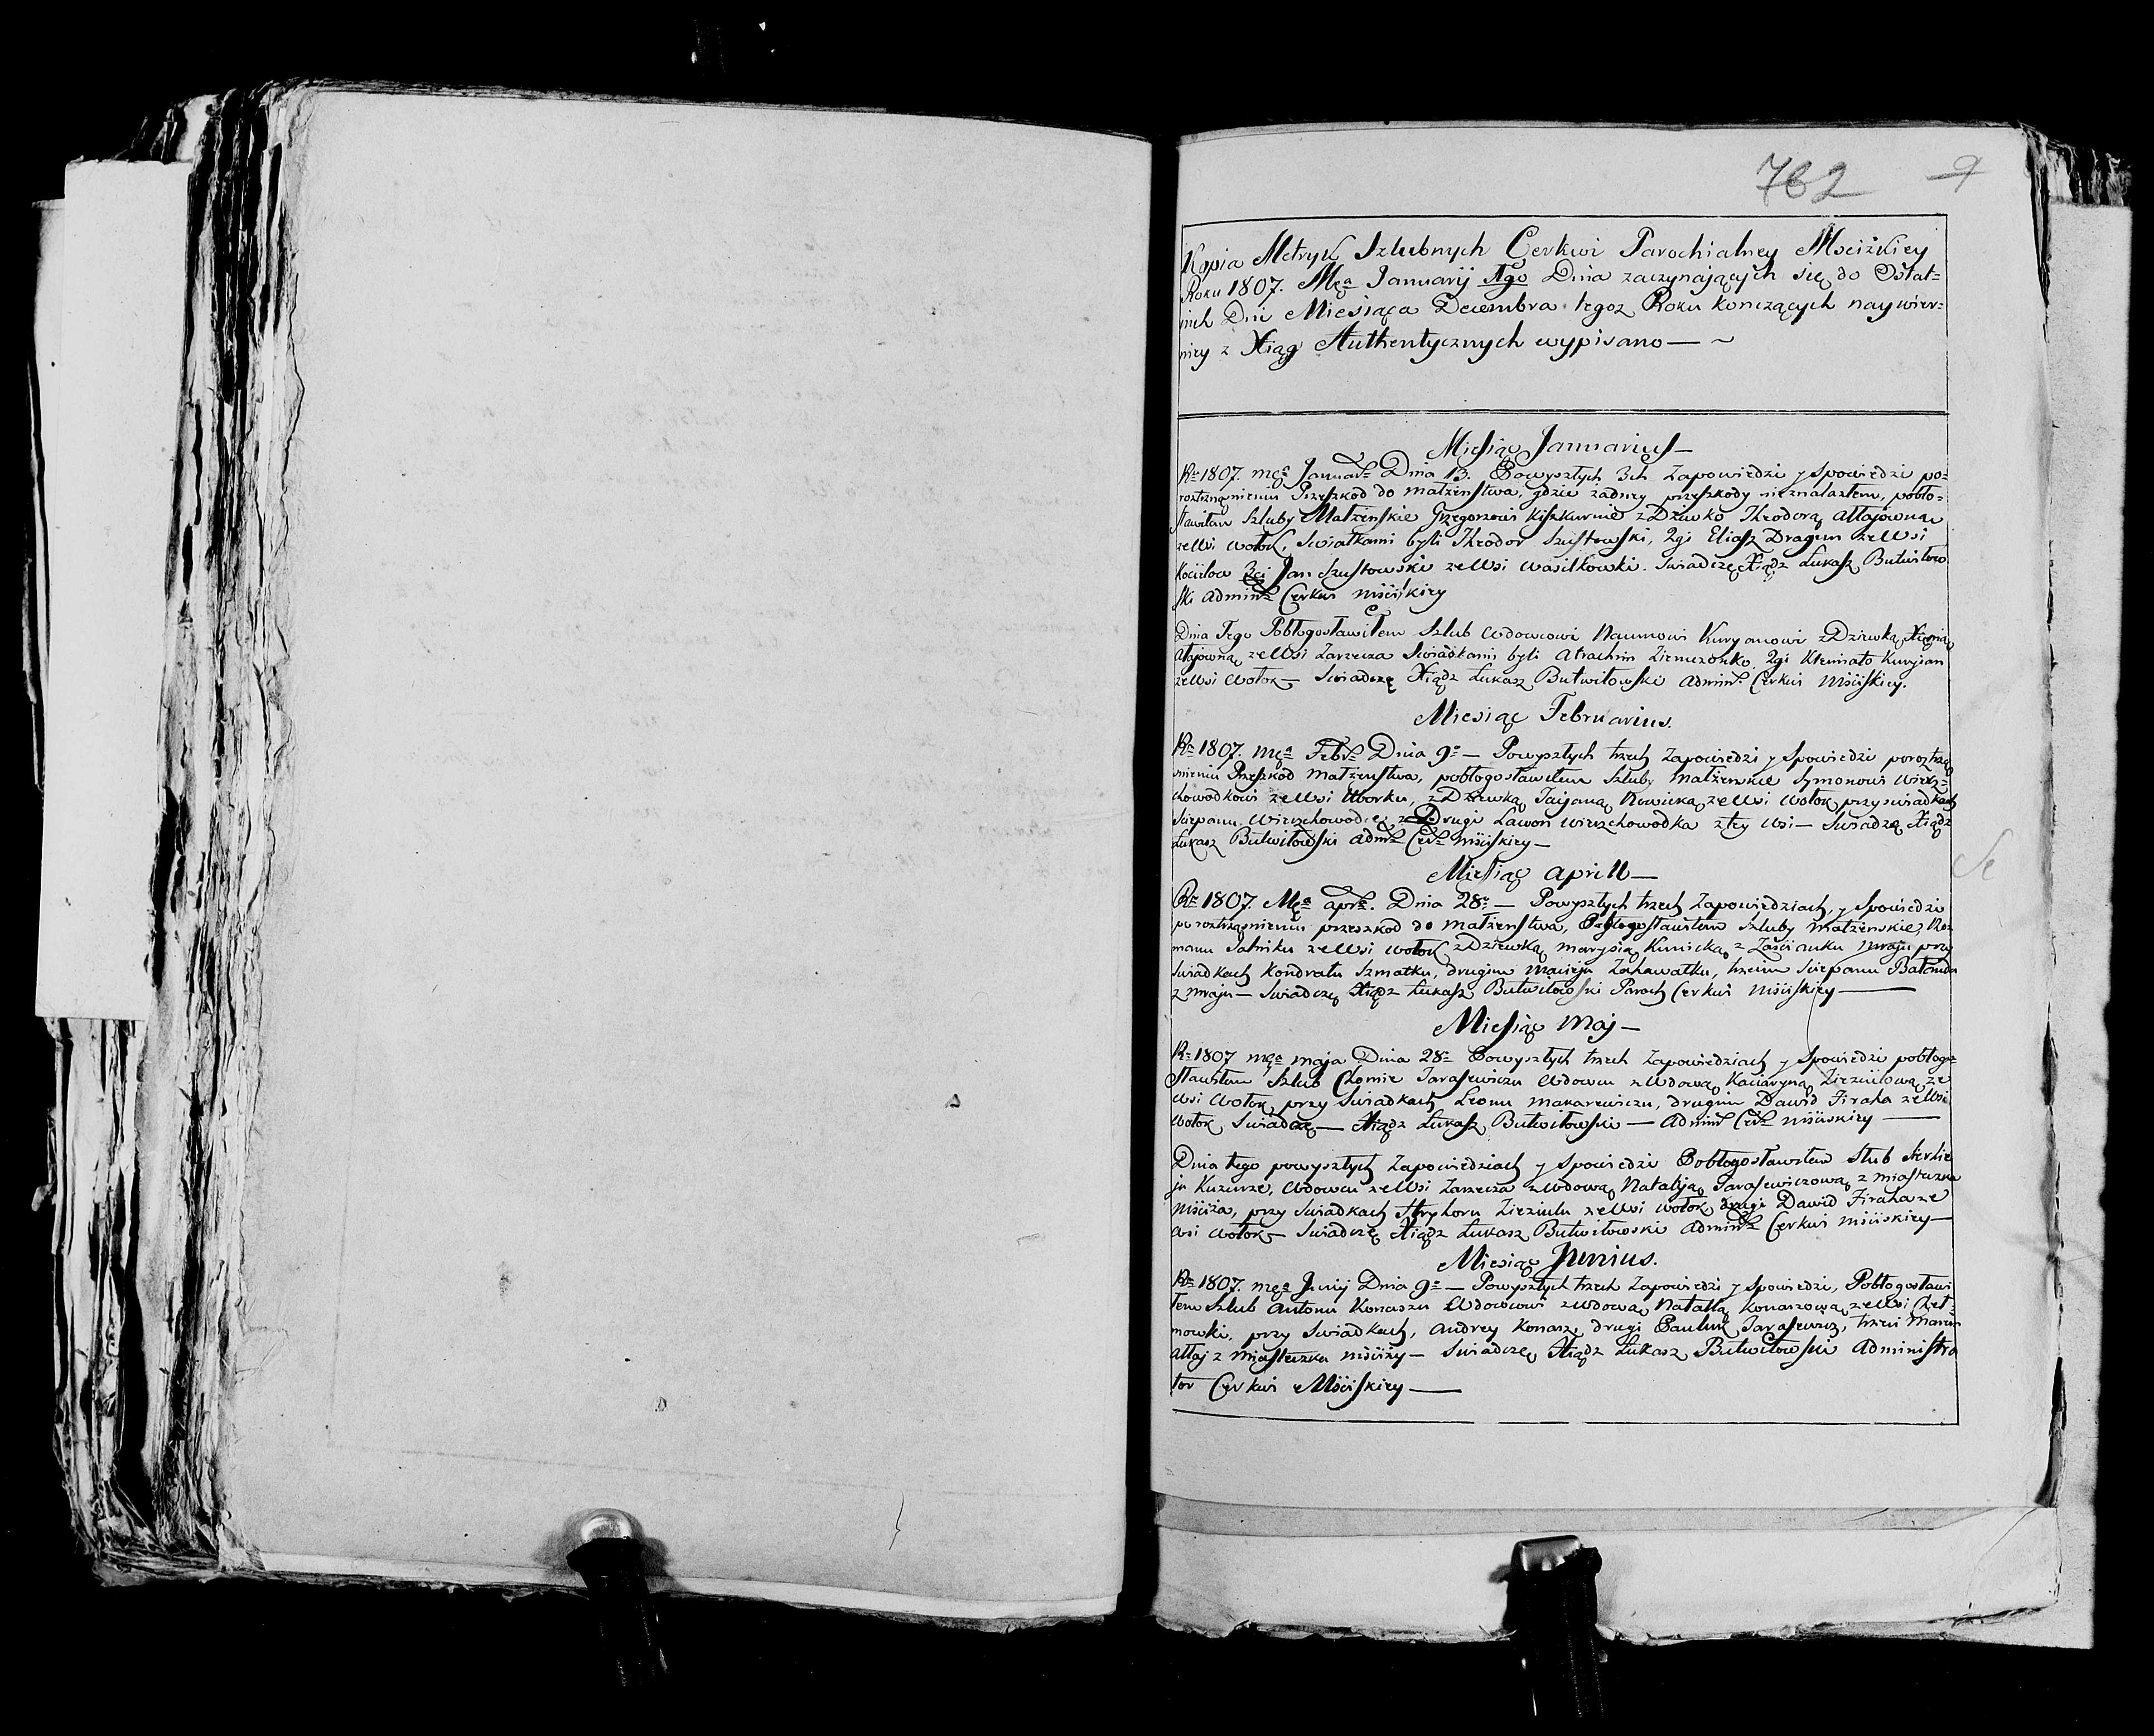 762 9
Kopia Metryk Szlubnych Cerkwi Parochialney Mscizkiey
Roku 1807. Mca Januarij 1go Dnia zaczynaiących się do Ostat=
nich Dni Miesiąca Decembra tegoz Roku konczących naywier=
niey z Xiąg Authentycznych wypisano — ~
Miesiąc Januarius —
Ru 1807. mca Januar Dnia 13. Powyszłych 3ch Zapowiedzi y Spowiedzi po=
roztrząsnieniu Przeszkod do małżenstwa, gdzie żadney przeszkody nieznalazłem, pobło=
sławiłem Szluby Małżeńskie Grzegorzowi Kiszkurnie z Dziewko Theodorą Ałłajowną
ze Wsi Wołok, Swiatkami byli Theodor Szustowski, 2gi Eliasz Dragun ze Wsi
3ci Jan Szustowski ze Wsi Wasilkowki. Swiadczę Xiądz Łukasz Butwiłow
ski Admin Cerkwi Mściskiey
Dnia Tego Pobłogosławiłem Szlub Wdowcowi Naumowi Kuryanowi z Dziewką Xienią
Ałajowną ze Wsi Zarzecza Swiadkami byli Atrachim Ziemczonko, 2gi Klemiato Kuryian
ze Wsi Wołok — Swiadczę Xiądz Łukasz Butwiłowski Admin. Cerkwi Mściskiey.
Miesiąc Februarius.
Ru 1807. mca Febr Dnia 9o — Powyszłych trzech Zapowiedzi y Spowiedzi poroztrzą
snieniu Przeszkod małżenstwa, pobłogosławiłem Szluby małżenskie Symonowi Wierz=
chowodkowi ze Wsi Uborku, z Dziewką Taijaną Nowicką ze Wsi Wołok przy swiadkach
Sciepanu Wierzchowod Drugi Lawon Wierzchowodka z tey Wsi — Swiadzą Xiądz
Łukasz Butwiłowski Adm Cer Mściskiey —
Miesiąc Aprill —
Ru 1807. Mca Apr. Dnia 28o — Powyszłych trzech Zapowiedziach, y Spowiedzi
po roztrząsnieniu przeszkod do małżenstwa, Pobłogosławiłem Szluby małżenskie, Ro
manu Satniku ze Wsi Wołok z Dziewką Marysią Kunicką z Zaścianku Mraju przy
Swiadkach Kondratu Szmatku, drugim Macieju Zahawałku, trzeim Sciepanu Bałanda
z Mraju — Swiadczę Xiądz Łukasz Butwiłowski Paroch Cerkwi Mściskiey —
Miesiąc Maj —
Ru 1807 mca Maja Dnia 28o Powyszłych trzech Zapowiedziach y Spowiedzi pobłogo
sławiłem Szlub Chomie Tarasewiczu Wdowcu z Wdową Kaciaryną Zieziulową ze
Wsi Wołok, przy Swiadkach Leonu Makarewiczu, drugim Dawid Firaha ze Wsi
Wołok Swiadczę — Xiądz Łukasz Butwiłowski — Admin Cer Mściskiey —
Dnia tego powyszłych Zapowiedziach y Spowiedzi Pobłogosławiłem Slub Serhie
ju Kuzurze, Wdowcu ze Wsi Zarzecza z Wdową Nataliją Tarasewiczową z miasteczka
Mściża, przy Swiadkach Hryhoru Zieziulu ze Wsi Wołok drugi Dawid Firaha ze
Wsi Wołok — Swiadczę Xiądz Łukasz Butwiłowski Admin Cerkwi Mściskiey —
Miesiąc Junius.
Ru 1807. mca Junij Dnia 9o — Powyszłych trzech Zapowiedzi y Spowiedzi, Pobłogosławi
łem Szlub Antonu Konaszu Wdowcowi z Wdową Natallą Konaszową ze Wsi Chet=
mowki, przy Swiadkach, Andrey Konasz, drugi Pauluk Tarasewicz, trzeci Marcin
Ałłaj z Miasteczka Mściży — Swiadczę Xiądz Łukasz Butwiłowski Administra
tor Cerkwi Mściskiey —